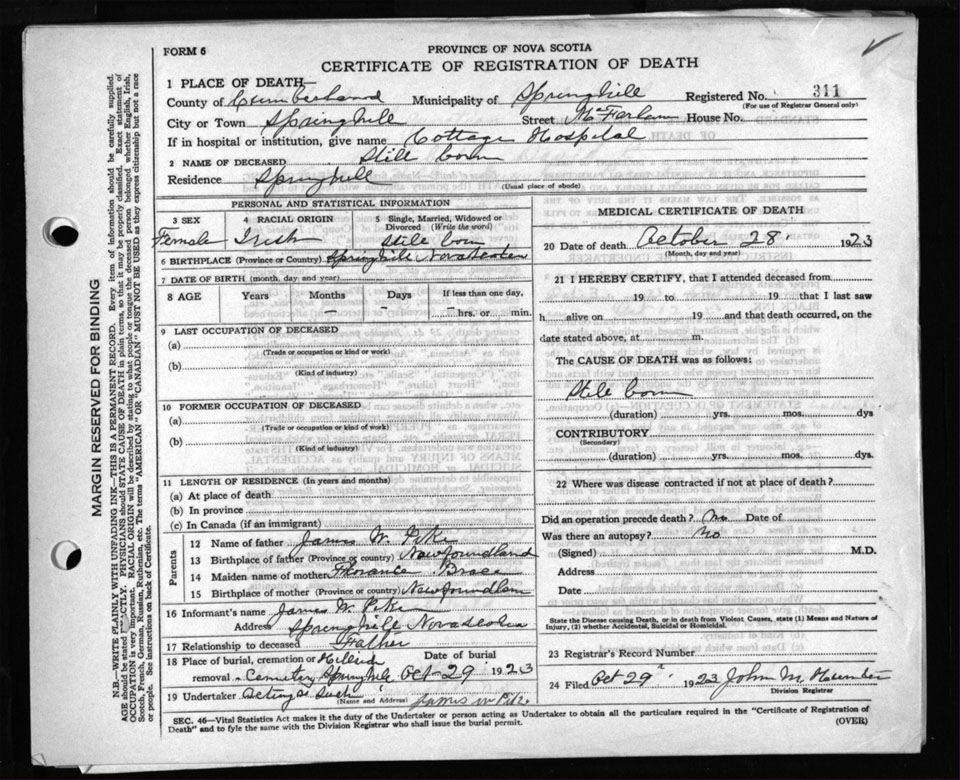 FORM 6
PROVINCE OF NOVA SCOTIA
CERTIFICATE OF REGISTRATION OF DEATH
1 PLACE OF DEATH—
County of Cumberland Municipality of Springhill Registered No. 311
(For use of Registrar General only)
City or Town Springhill Street House No.
If in hospital or institution, give name Cottage Hospital
2 NAME OF DECEASED Still born
Residence Springhill
(Usual place of abode)
PERSONAL AND STATISTICAL INFORMATION
3 SEX 4 RACIAL ORIGIN 5 Single, Married, Widowed or Divorced (Write the word)
Female Irish Still born
6 BIRTHPLACE (Province or Country) Springhill Nova Scotia
7 DATE OF BIRTH (month, day and year)
8 AGE Years Months Days If less than one day,
— — hrs. or min.
9 LAST OCCUPATION OF DECEASED
(a)
(Trade or occupation or kind or work)
(b)
(Kind of industry)
10 FORMER OCCUPATION OF DECEASED
(a)
(Trade or occupation or kind of work)
(b)
(Kind of industry)
11 LENGTH OF RESIDENCE (In years and months)
(a) At place of death
(b) In province
(c) In Canada (if an immigrant)
Parents
12 Name of father James W. Pike
13 Birthplace of father (Province or country) Newfoundland
14 Maiden name of mother Florance Brace
15 Birthplace of mother (Province or country) Newfoundlan
16 Informant's name James W. Pike
Address Springhill Nova Scotia
17 Relationship to deceased Father
18 Place of burial, cremation or Hillside Date of burial
removal Cemetery Springhill Oct-29 1923
19 Undertaker Acting as Such James W Pike
(Name and Address)
MEDICAL CERTIFICATE OF DEATH
20 Date of death October 28 1923
(Month, day and year)
21 I HEREBY CERTIFY, that I attended deceased from
19 to 19 that I last saw
h alive on 19 and that death occurred, on the
date stated above, at m.
The CAUSE OF DEATH was as follows:
Still born
(duration) yrs. mos. dys
CONTRIBUTORY
(Secondary)
(duration) yrs. mos. dys.
22 Where was disease contracted if not at place of death?
Did an operation precede death? No Date of
Was there an autopsy? No
(Signed) M.D.
Address
Date
State the Disease causing Death, or in death from Violent Causes, state (1) Means and Nature of
Injury, (2) whether Accidental, Suicidal or Homicidal.
23 Registrar's Record Number
24 Filed Oct 29 1923 John M Hunter
Division Registrar
SEC. 46—Vital Statistics Act makes it the duty of the Undertaker or person acting as Undertaker to obtain all the particulars required in the "Certificate of Registration of
Death" and to fyle the same with the Division Registrar who shall issue the burial permit.
(OVER)
MARGIN RESERVED FOR BINDING
N.B.—WRITE PLAINLY WITH UNFADING INK—THIS IS A PERMANENT RECORD. Every item of information should be carefully supplied.
AGE should be stated EXACTLY. PHYSICIANS should STATE CAUSE OF DEATH in plain terms, so that it may be properly classified. Exact statement of
OCCUPATION is very important. RACIAL ORIGIN will be described by stating to what people or tongue the deceased person belonged whether English, Irish,
Scotch, French, German, Russian, Ruthenian, etc. The terms "AMERICAN" OR "CANADIAN" MUST NOT BE USED as they express citizenship but not a race
or people. See instructions on back of Certificate.